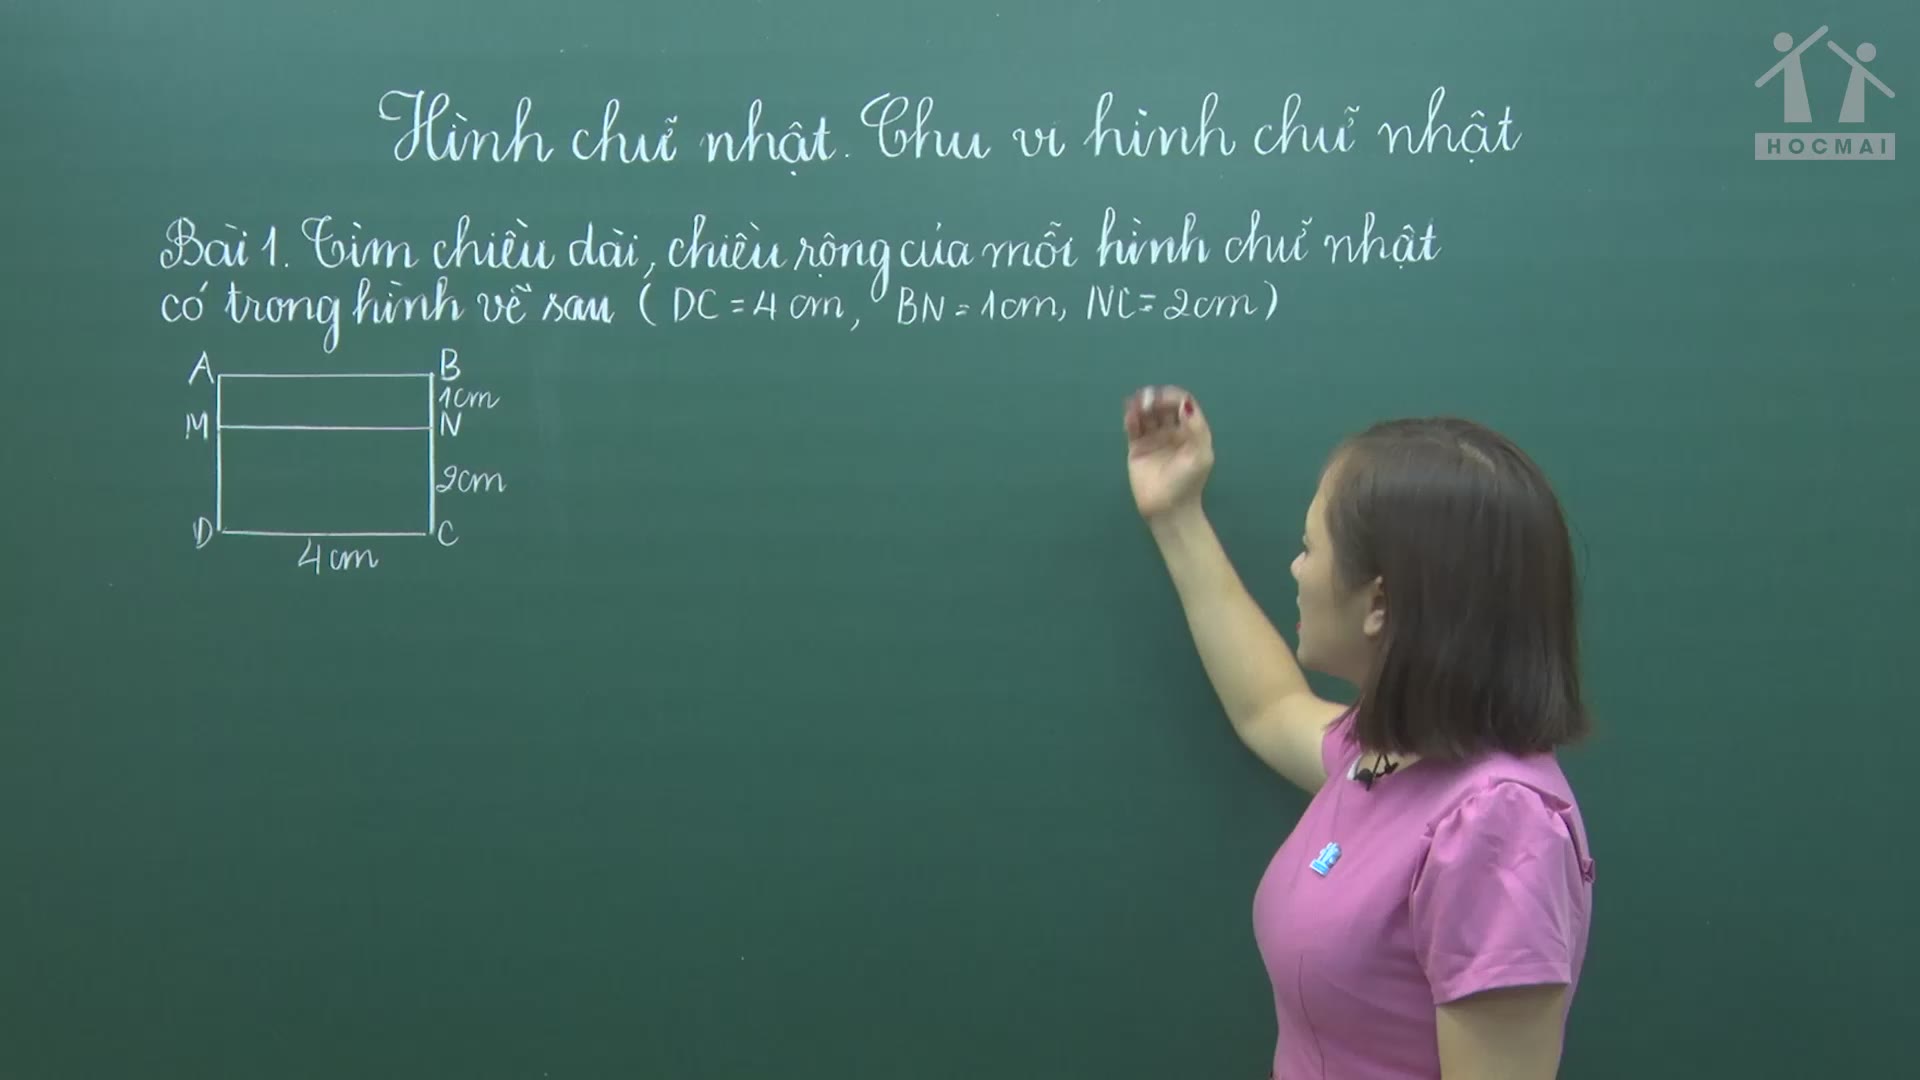 Hình chữ nhật. Chu vi hình chữ nhật
HOCMAI
Bài 1. Tìm chiều dài, chiều rộng của mỗi hình chữ nhật
có trong hình vẽ sau (DC = 4 cm, BN = 1cm, NC = 2cm)
A B
1cm
M N
2cm
D C
4 cm